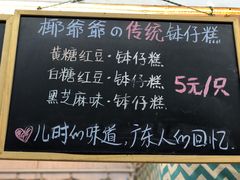 椰爷爷の传统钵仔糕
黄糖红豆·钵仔糕
白糖红豆·钵仔糕 5元/只
黑芝麻味·钵仔糕
儿时的味道,广东人的回忆.